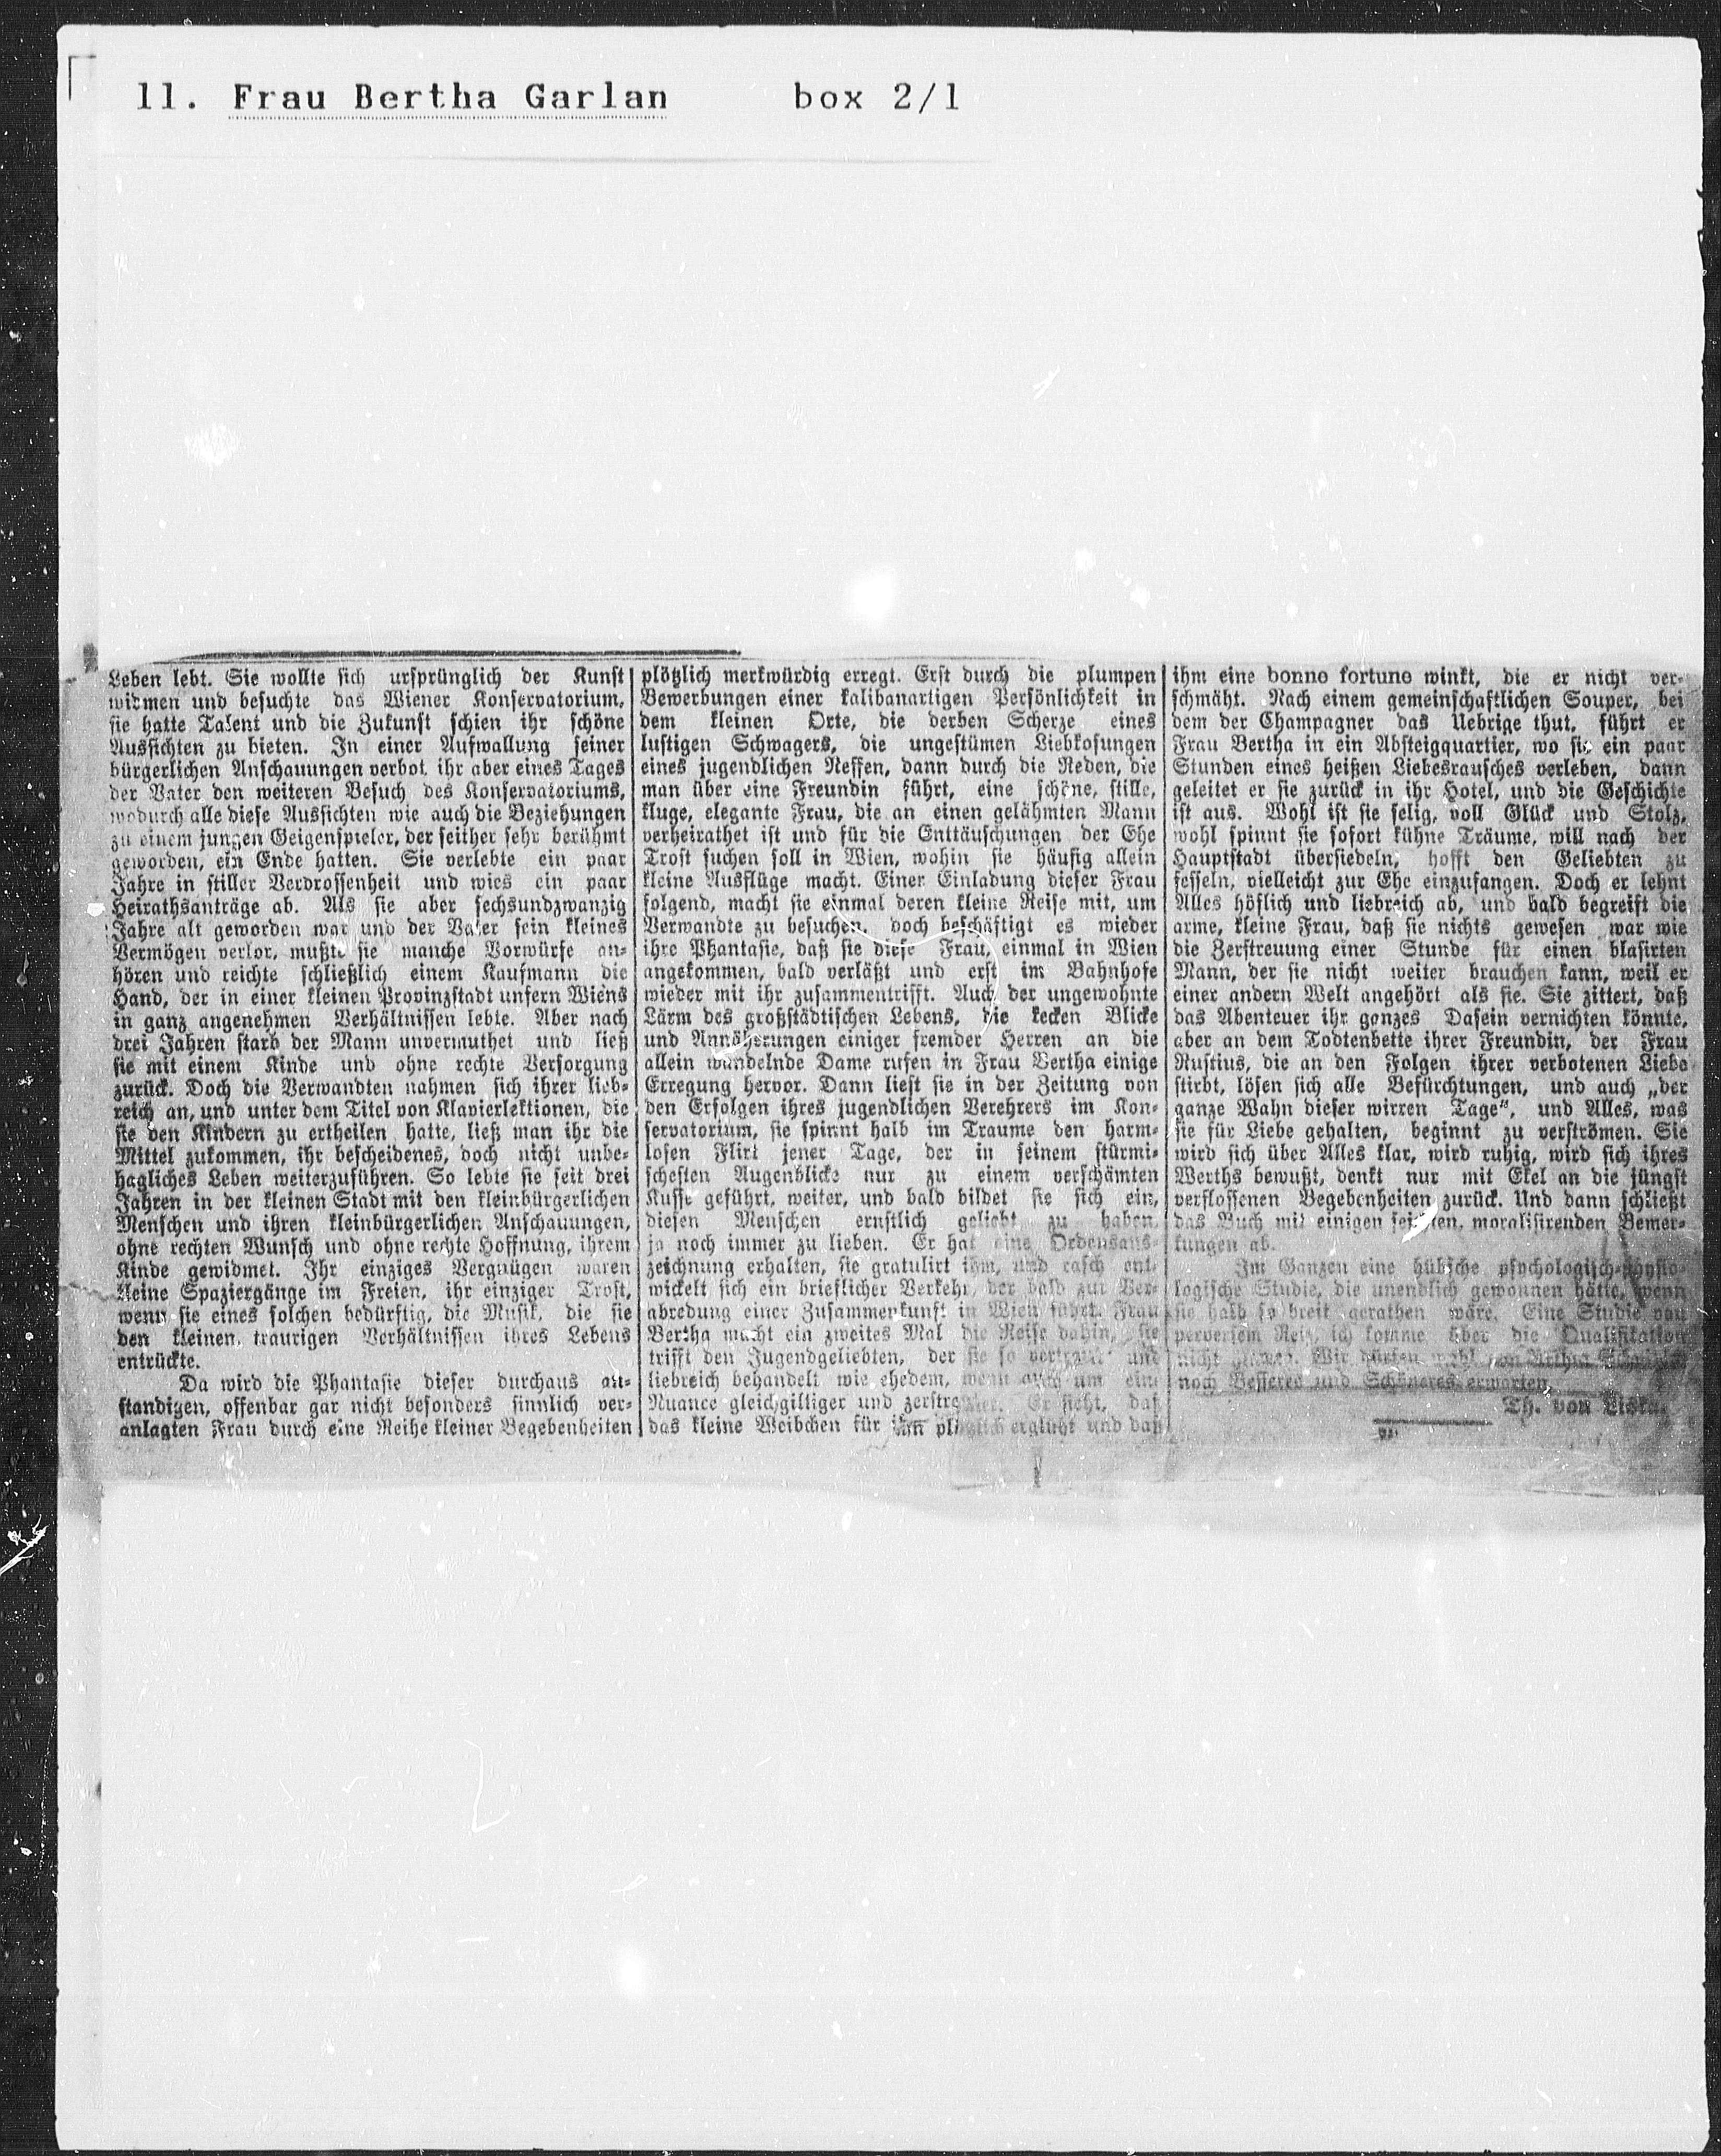 11. Frau Bertha Garlan box 2/1
Leben lebt. Sie wollte sich ursprünglich der Kunst
widmen und besuchte das Wiener Konservatorium,
sie hatte Talent und die Zukunft schien ihr schöne
Aussichten zu bieten. In einer Aufwallung seiner
bürgerlichen Anschauungen verbot ihr aber eines Tages
der Vater den weiteren Besuch des Konservatoriums,
wodurch alle diese Aussichten wie auch die Beziehungen
zu einem jungen Geigenspieler, der seither sehr berühmt
geworden, ein Ende hatten. Sie verlebte ein paar
Jahre in stiller Verdrossenheit und wies ein paar
Heirathsanträge ab. Als sie aber sechsundzwanzig
Jahre alt geworden war und der Vater sein kleines
Vermögen verlor, mußte sie manche Vorwürfe an-
hören und reichte schließlich einem Kaufmann die
Hand, der in einer kleinen Provinzstadt unfern Wiens
in ganz angenehmen Verhältnissen lebte. Aber nach
drei Jahren starb der Mann unvermuthet und ließ
sie mit einem Kinde und ohne rechte Versorgung
zurück. Doch die Verwandten nahmen sich ihrer lieb-
reich an, und unter dem Titel von Klavierlektionen, die
sie den Kindern zu ertheilen hatte, ließ man ihr die
Mittel zukommen, ihr bescheidenes, doch nicht unbe-
hagliches Leben weiterzuführen. So lebte sie seit drei
Jahren in der kleinen Stadt mit den kleinbürgerlichen
Menschen und ihren kleinbürgerlichen Anschauungen,
ohne rechten Wunsch und ohne rechte Hoffnung, ihrem
Kinde gewidmet. Ihr einziges Vergnügen waren
kleine Spaziergänge im Freien, ihr einziger Trost,
wenn sie eines solchen bedürftig, die Musik, die sie
den kleinen, traurigen Verhältnissen ihres Lebens
entrückte.
Da wird die Phantasie dieser durchaus an-
ständigen, offenbar gar nicht besonders sinnlich ver-
anlagten Frau durch eine Reihe kleiner Begebenheiten
plötzlich merkwürdig erregt. Erst durch die plumpen
Bewerbungen einer kalibanartigen Persönlichkeit in
dem kleinen Orte, die derben Scherze eines
lustigen Schwagers, die ungestümen Liebkosungen
eines jugendlichen Neffen, dann durch die Reden, die
man über eine Freundin führt, eine schöne, stille,
kluge, elegante Frau, die an einen gelähmten Mann
verheirathet ist und für die Enttäuschungen der Ehe
Trost suchen soll in Wien, wohin sie häufig allein
kleine Ausflüge macht. Einer Einladung dieser Frau
folgend, macht sie einmal deren kleine Reise mit, um
Verwandte zu besuchen, doch beschäftigt es wieder
ihre Phantasie, daß sie diese Frau, einmal in Wien
angekommen, bald verläßt und erst im Bahnhofe
wieder mit ihr zusammentrifft. Auch der ungewohnte
Lärm des großstädtischen Lebens, die kecken Blicke
und Annäherungen einiger fremder Herren an die
allein wandelnde Dame rufen in Frau Bertha einige
Erregung hervor. Dann liest sie in der Zeitung von
den Erfolgen ihres jugendlichen Verehrers im Kon-
servatorium, sie spinnt halb im Traume den harm-
losen Flirt jener Tage, der in seinem stürmi-
schesten Augenblicke nur zu einem verschämten
Kusse geführt, weiter, und bald bildet sie sich ein,
diesen Menschen ernstlich geliebt zu haben,
ja noch immer zu lieben. Er hat eine Ordensaus-
zeichnung erhalten, sie gratulirt ihm, und rasch ent-
wickelt sich ein brieflicher Verkehr, der bald zur Ver-
abredung einer Zusammenkunft in Wien führt. Frau
Bertha macht ein zweites Mal die Reise dahin, sie
trifft den Jugendgeliebten, der sie so vertraut und
liebreich behandelt wie ehedem, wenn auch um eine
Nuance gleichgiltiger und zerstreuter. Er sieht, daß
das kleine Weibchen für ihn plötzlich erglüht und daß
ihm eine bonne fortune winkt, die er nicht ver-
schmäht. Nach einem gemeinschaftlichen Souper, bei
dem der Champagner das Uebrige thut, führt er
Frau Bertha in ein Absteigquartier, wo sie ein paar
Stunden eines heißen Liebesrausches verleben, dann
geleitet er sie zurück in ihr Hotel, und die Geschichte
ist aus. Wohl ist sie selig, voll Glück und Stolz,
wohl spinnt sie sofort kühne Träume, will nach der
Hauptstadt übersiedeln, hofft den Geliebten zu
fesseln, vielleicht zur Ehe einzufangen. Doch er lehnt
Alles höflich und liebreich ab, und bald begreift die
arme, kleine Frau, daß sie nichts gewesen war wie
die Zerstreuung einer Stunde für einen blasirten
Mann, der sie nicht weiter brauchen kann, weil er
einer andern Welt angehört als sie. Sie zittert, daß
das Abenteuer ihr ganzes Dasein vernichten könnte,
aber an dem Todtenbette ihrer Freundin, der Frau
Rustius, die an den Folgen ihrer verbotenen Liebe
stirbt, lösen sich alle Befürchtungen, und auch „der
ganze Wahn dieser wirren Tage", und Alles, was
sie für Liebe gehalten, beginnt zu verströmen. Sie
wird sich über Alles klar, wird ruhig, wird sich ihres
Werths bewußt, denkt nur mit Ekel an die jüngst
verflossenen Begebenheiten zurück. Und dann schließt
das Buch mit einigen moralisirenden Bemer-
kungen ab.
Im Ganzen eine hübsche psychologisch-physio-
logische Studie, die unendlich gewonnen hätte, wenn
sie halb so breit gerathen wäre. Eine Studie von
perversem Reiz, ich komme über die Qualifikation
nicht hinweg. Wir dürfen wohl von Arthur Schnitzler
noch Besseres und Schöneres erwarten.
Th. von